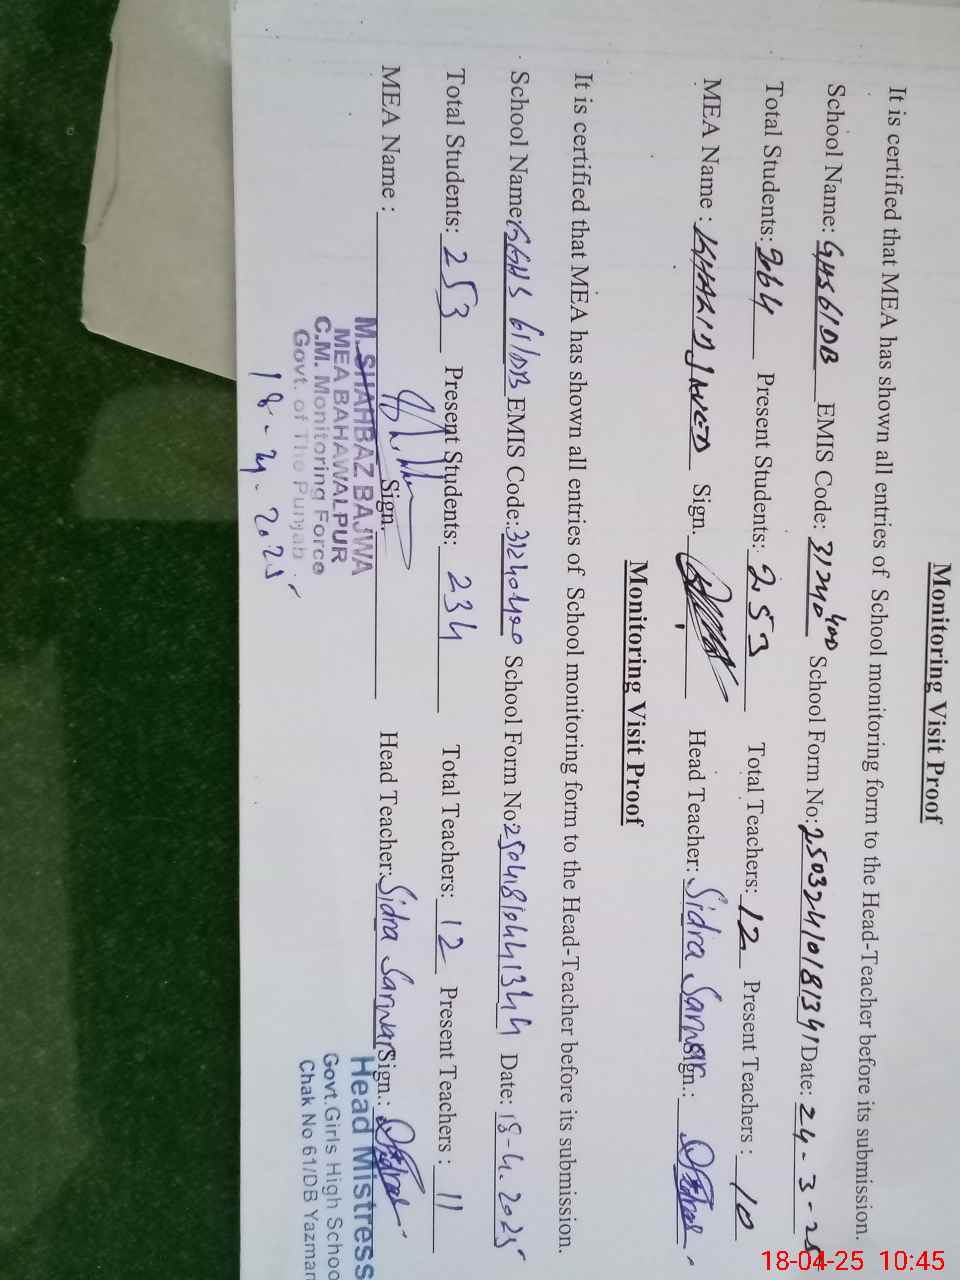 Monitoring Visit Proof
It is certified that MEA has shown all entries of School monitoring form to the Head-Teacher before its submission.
School Name: GHS 61DB EMIS Code: 31240400 School Form No: 25032410181341 Date: 24-3-25
Total Students: 264 Present Students: 253 Total Teachers: 12 Present Teachers : 10
MEA Name : KHALID JAVED Sign. Head Teacher: Sidra Sarwar Sign.:
Monitoring Visit Proof
It is certified that MEA has shown all entries of School monitoring form to the Head-Teacher before its submission.
School Name: GGHS 61/DB EMIS Code: 31240400 School Form No 25041810441344 Date: 18-4.2025
Total Students: 253 Present Students: 234 Total Teachers: 12 Present Teachers : 11
MEA Name : Sign. Head Teacher: Sidra Sarwar Sign.:
M. SHAHBAZ BAJWA
MEA BAHAWALPUR
C.M. Monitoring Force
Govt. of The Punjab
18-4-2025
Head Mistress
Govt. Girls High Schoo
Chak No 61/DB Yazman
18-04-25 10:45